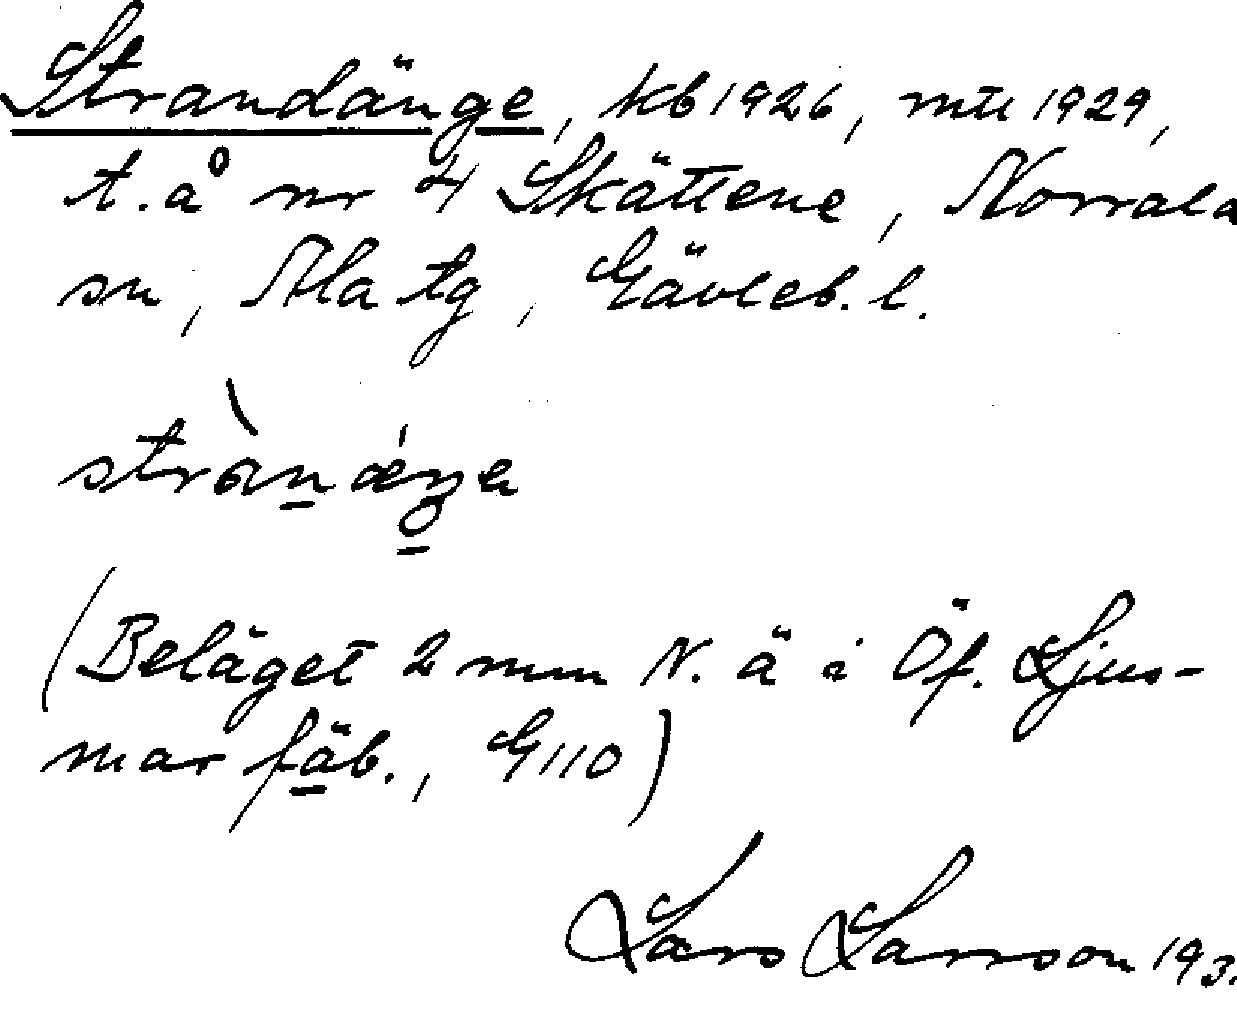 Strandänge, kb 1926, mtl 1929,
t. å nr 4 Skättene, Norrala
sn, Ala tg, Gävleb. l.
(Beläget 2 mm N. ä i Öf. Ljus-
mar fäb., G110)
Lars Larsson 193.